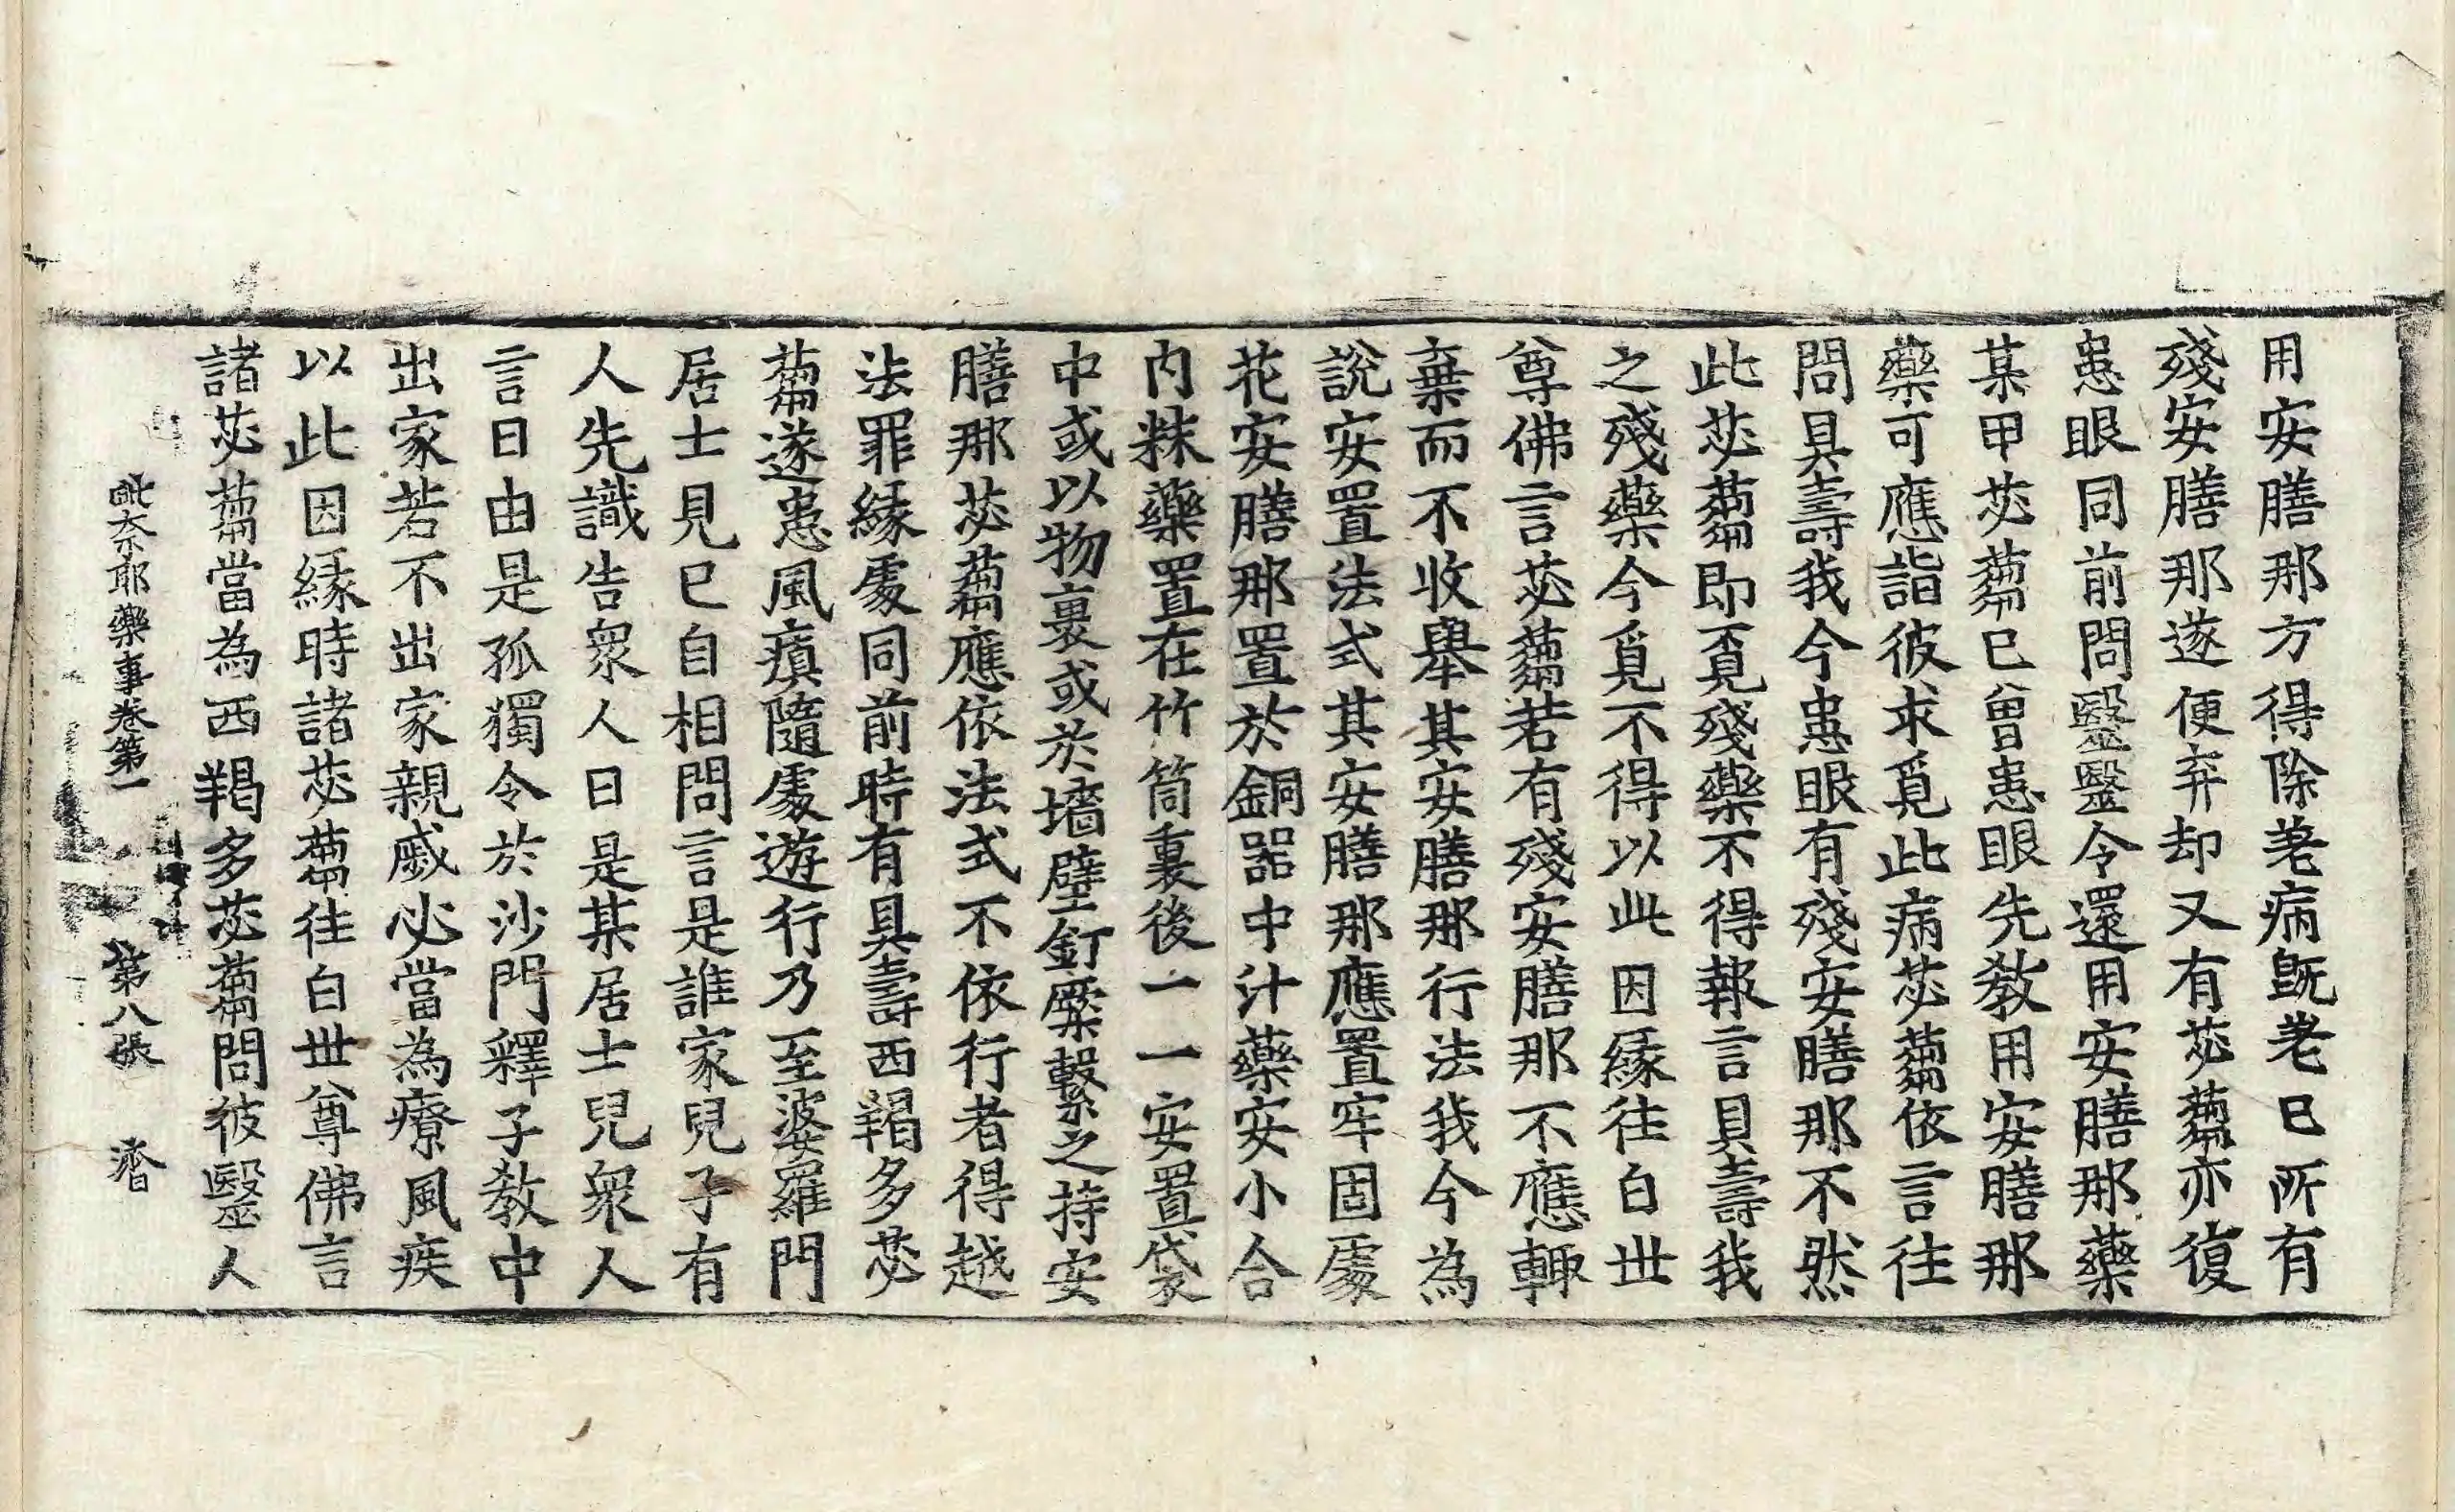 用安膳那方得除差病旣差已所有
殘安膳那遂便弃却又有苾蒭亦復
患眼同前問醫醫令還用安膳那藥
某甲苾蒭已曾患眼先教用安膳那
藥可應詣彼求覓此病苾蒭依言往
問具壽我今患眼有殘安膳那不然
此苾蒭即覔殘藥不得報言具壽我
之殘藥今覓不得以此因緣往白世
尊佛言苾蒭若有殘安膳那不應輙
棄而不收舉其安膳那行法我今為
說安置法式其安膳那應置牢固處
花安膳那置於銅器中汁藥安小合
內粖藥置在竹筒裏後一一安置袋
中或以物裹或於墻壁釘橜繫之持安
膳那苾蒭應依法式不依行者得越
法罪緣處同前時有具壽西羯多苾
蒭遂患風瘨隨處遊行乃至婆羅門
居士見已自相問言是誰家兒子有
人先識告衆人曰是某居士兒衆人
言曰由是孤獨令於沙門釋子教中
出家若不出家親戚必當為療風疾
以此因緣時諸苾蒭往白世尊佛言
諸苾蒭當為西羯多苾蒭問彼醫人
毗奈耶藥事卷第一 第八張